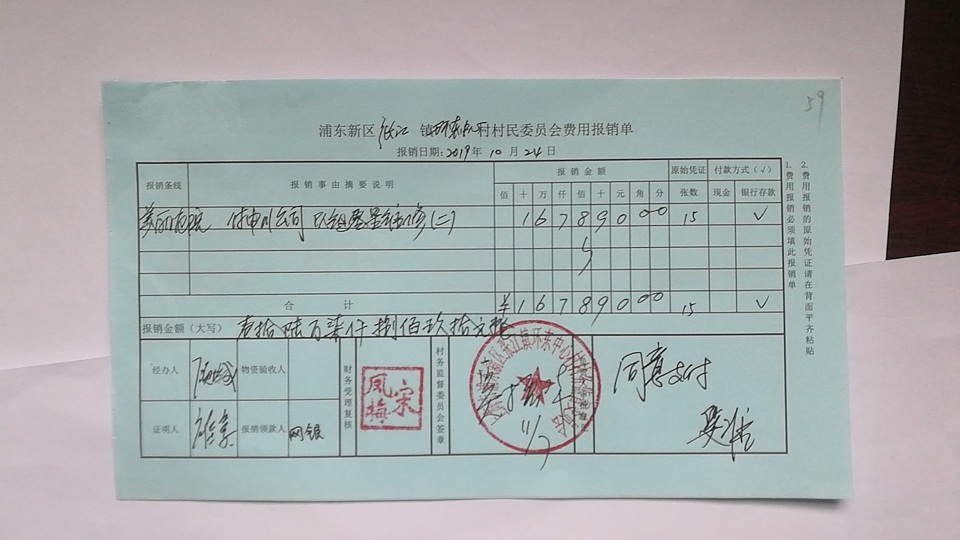 59
浦东新区 张江 镇环东中心村村民委员会费用报销单
报销日期：2019年 10月 24日
报销条线 报销事由摘要说明 报销金额 原始凭证 付款方式（√）
佰 十 万 仟 佰 十 元 角 分 张数 现金 银行存款
美丽庭院 付申川公司 (二) 1 6 7 8 9 0 0 0 15 √
合 计 ¥ 1 6 7 8 9 0 0 0 15 √
报销金额（大写） 壹拾陆万柒仟捌佰玖拾元整
经办人 物资验收人 财务受理复核 凤梅宋 村务监督委员会签章 11/7 同意支付
证明人 报销领款人 网银
1. 费用报销必须填此报销单
2. 费用报销的原始凭证请在背面平齐粘贴